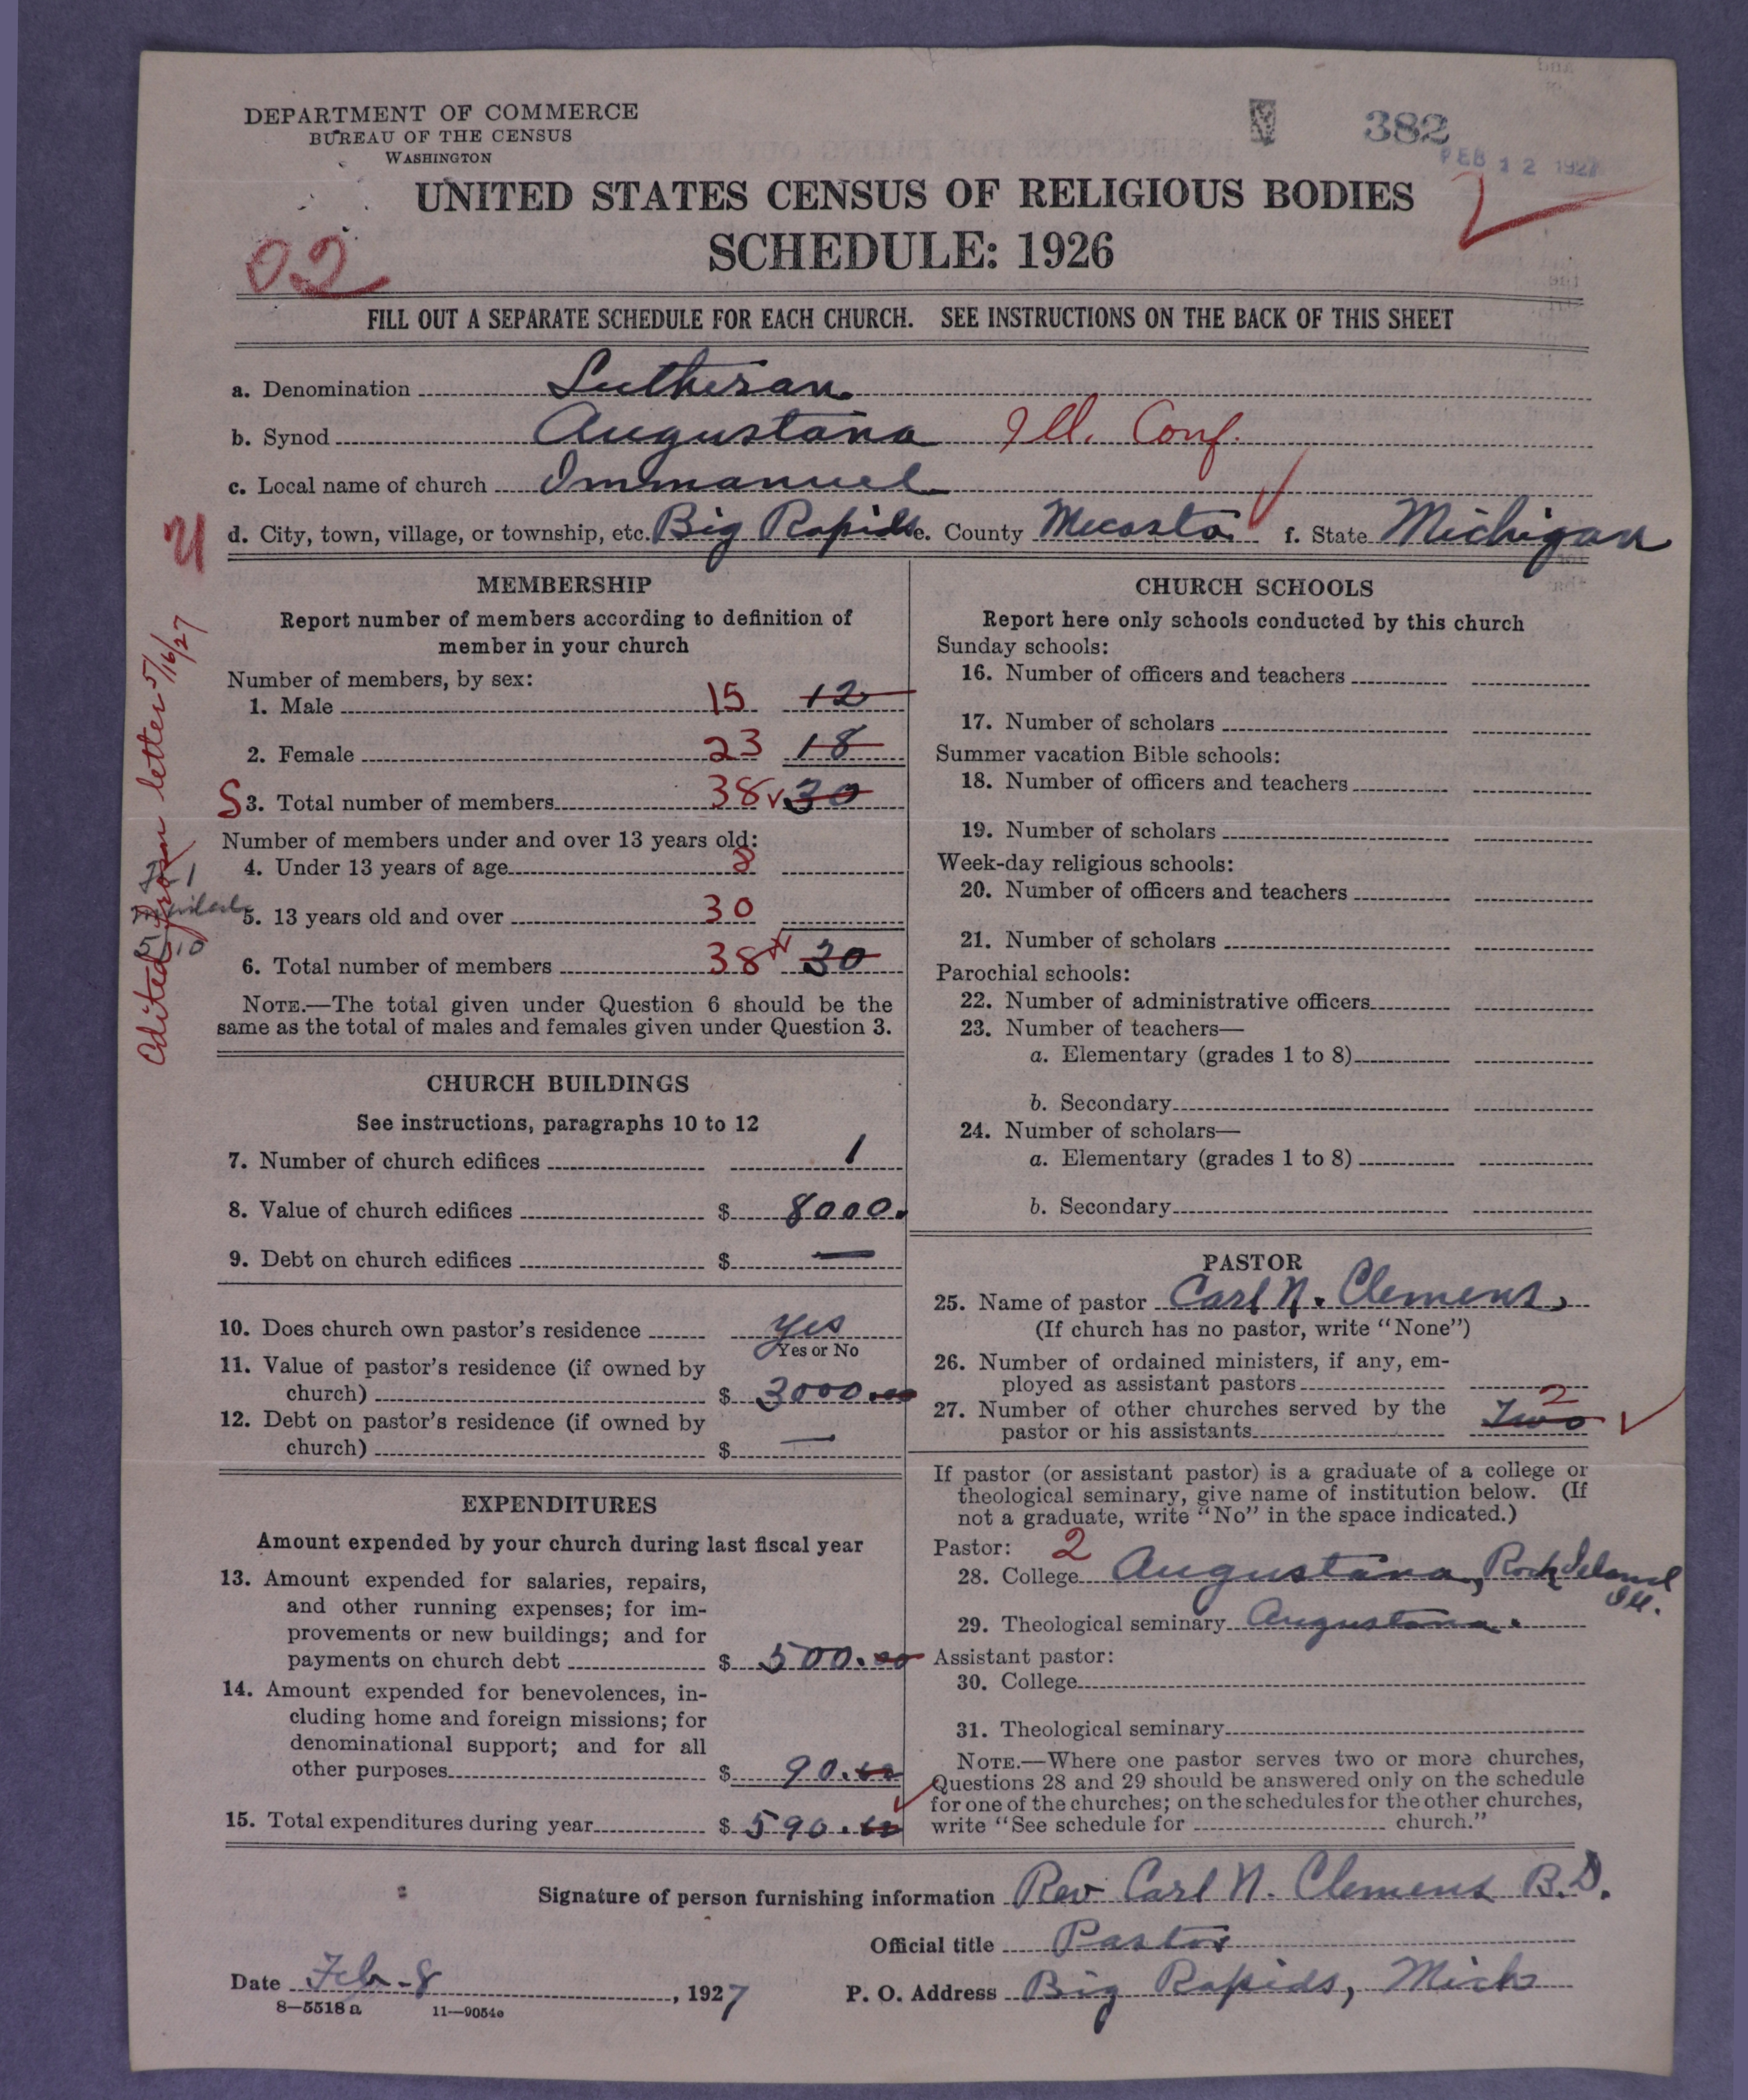 DEPARTMENT OF COMMERCE
BUREAU OF THE CENSUS
WASHINGTON
382
FEB 12 1927
UNITED STATES CENSUS OF RELIGIOUS BODIES
SCHEDULE: 1926
02
FILL OUT A SEPARATE SCHEDULE FOR EACH CHURCH. SEE INSTRUCTIONS ON THE BACK OF THIS SHEET
a. Denomination Lutheran
b. Synod Augustana Ill. Conf.
c. Local name of church Immanuel
d. City, town, village, or township, etc. Big Rapids e. County Mecosta f. State Michigan
Edited from letter 5/16/27
MEMBERSHIP
Report number of members according to definition of
member in your church
Number of members, by sex:
1. Male 15 12
2. Female 23 18
S 3. Total number of members 38 30
Number of members under and over 13 years old:
4. Under 13 years of age 8
5. 13 years old and over 30
6. Total number of members 38 30
NOTE.—The total given under Question 6 should be the
same as the total of males and females given under Question 3.
CHURCH BUILDINGS
See instructions, paragraphs 10 to 12
7. Number of church edifices 1
8. Value of church edifices $ 8000.
9. Debt on church edifices $ —
10. Does church own pastor's residence yes
Yes or No
11. Value of pastor's residence (if owned by
church) $ 3000.00
12. Debt on pastor's residence (if owned by
church) $ —
EXPENDITURES
Amount expended by your church during last fiscal year
13. Amount expended for salaries, repairs,
and other running expenses; for im-
provements or new buildings; and for
payments on church debt $ 500.00
14. Amount expended for benevolences, in-
cluding home and foreign missions; for
denominational support; and for all
other purposes $ 90.00
15. Total expenditures during year $ 590.00
CHURCH SCHOOLS
Report here only schools conducted by this church
Sunday schools:
16. Number of officers and teachers
17. Number of scholars
Summer vacation Bible schools:
18. Number of officers and teachers
19. Number of scholars
Week-day religious schools:
20. Number of officers and teachers
21. Number of scholars
Parochial schools:
22. Number of administrative officers
23. Number of teachers—
a. Elementary (grades 1 to 8)
b. Secondary
24. Number of scholars—
a. Elementary (grades 1 to 8)
b. Secondary
PASTOR
25. Name of pastor Carl N. Clemens
(If church has no pastor, write "None")
26. Number of ordained ministers, if any, em-
ployed as assistant pastors
27. Number of other churches served by the
pastor or his assistants Two 2
If pastor (or assistant pastor) is a graduate of a college or
theological seminary, give name of institution below. (If
not a graduate, write "No" in the space indicated.)
Pastor: 2
28. College Augustana, Rock Island Ill.
29. Theological seminary Augustana.
Assistant pastor:
30. College
31. Theological seminary
NOTE.—Where one pastor serves two or more churches,
Questions 28 and 29 should be answered only on the schedule
for one of the churches; on the schedules for the other churches,
write "See schedule for church."
Signature of person furnishing information Rev Carl N. Clemens B.D.
Official title Pastor
Date Feb. 8, 1927 P. O. Address Big Rapids, Mich
8—5518a 11—9054c